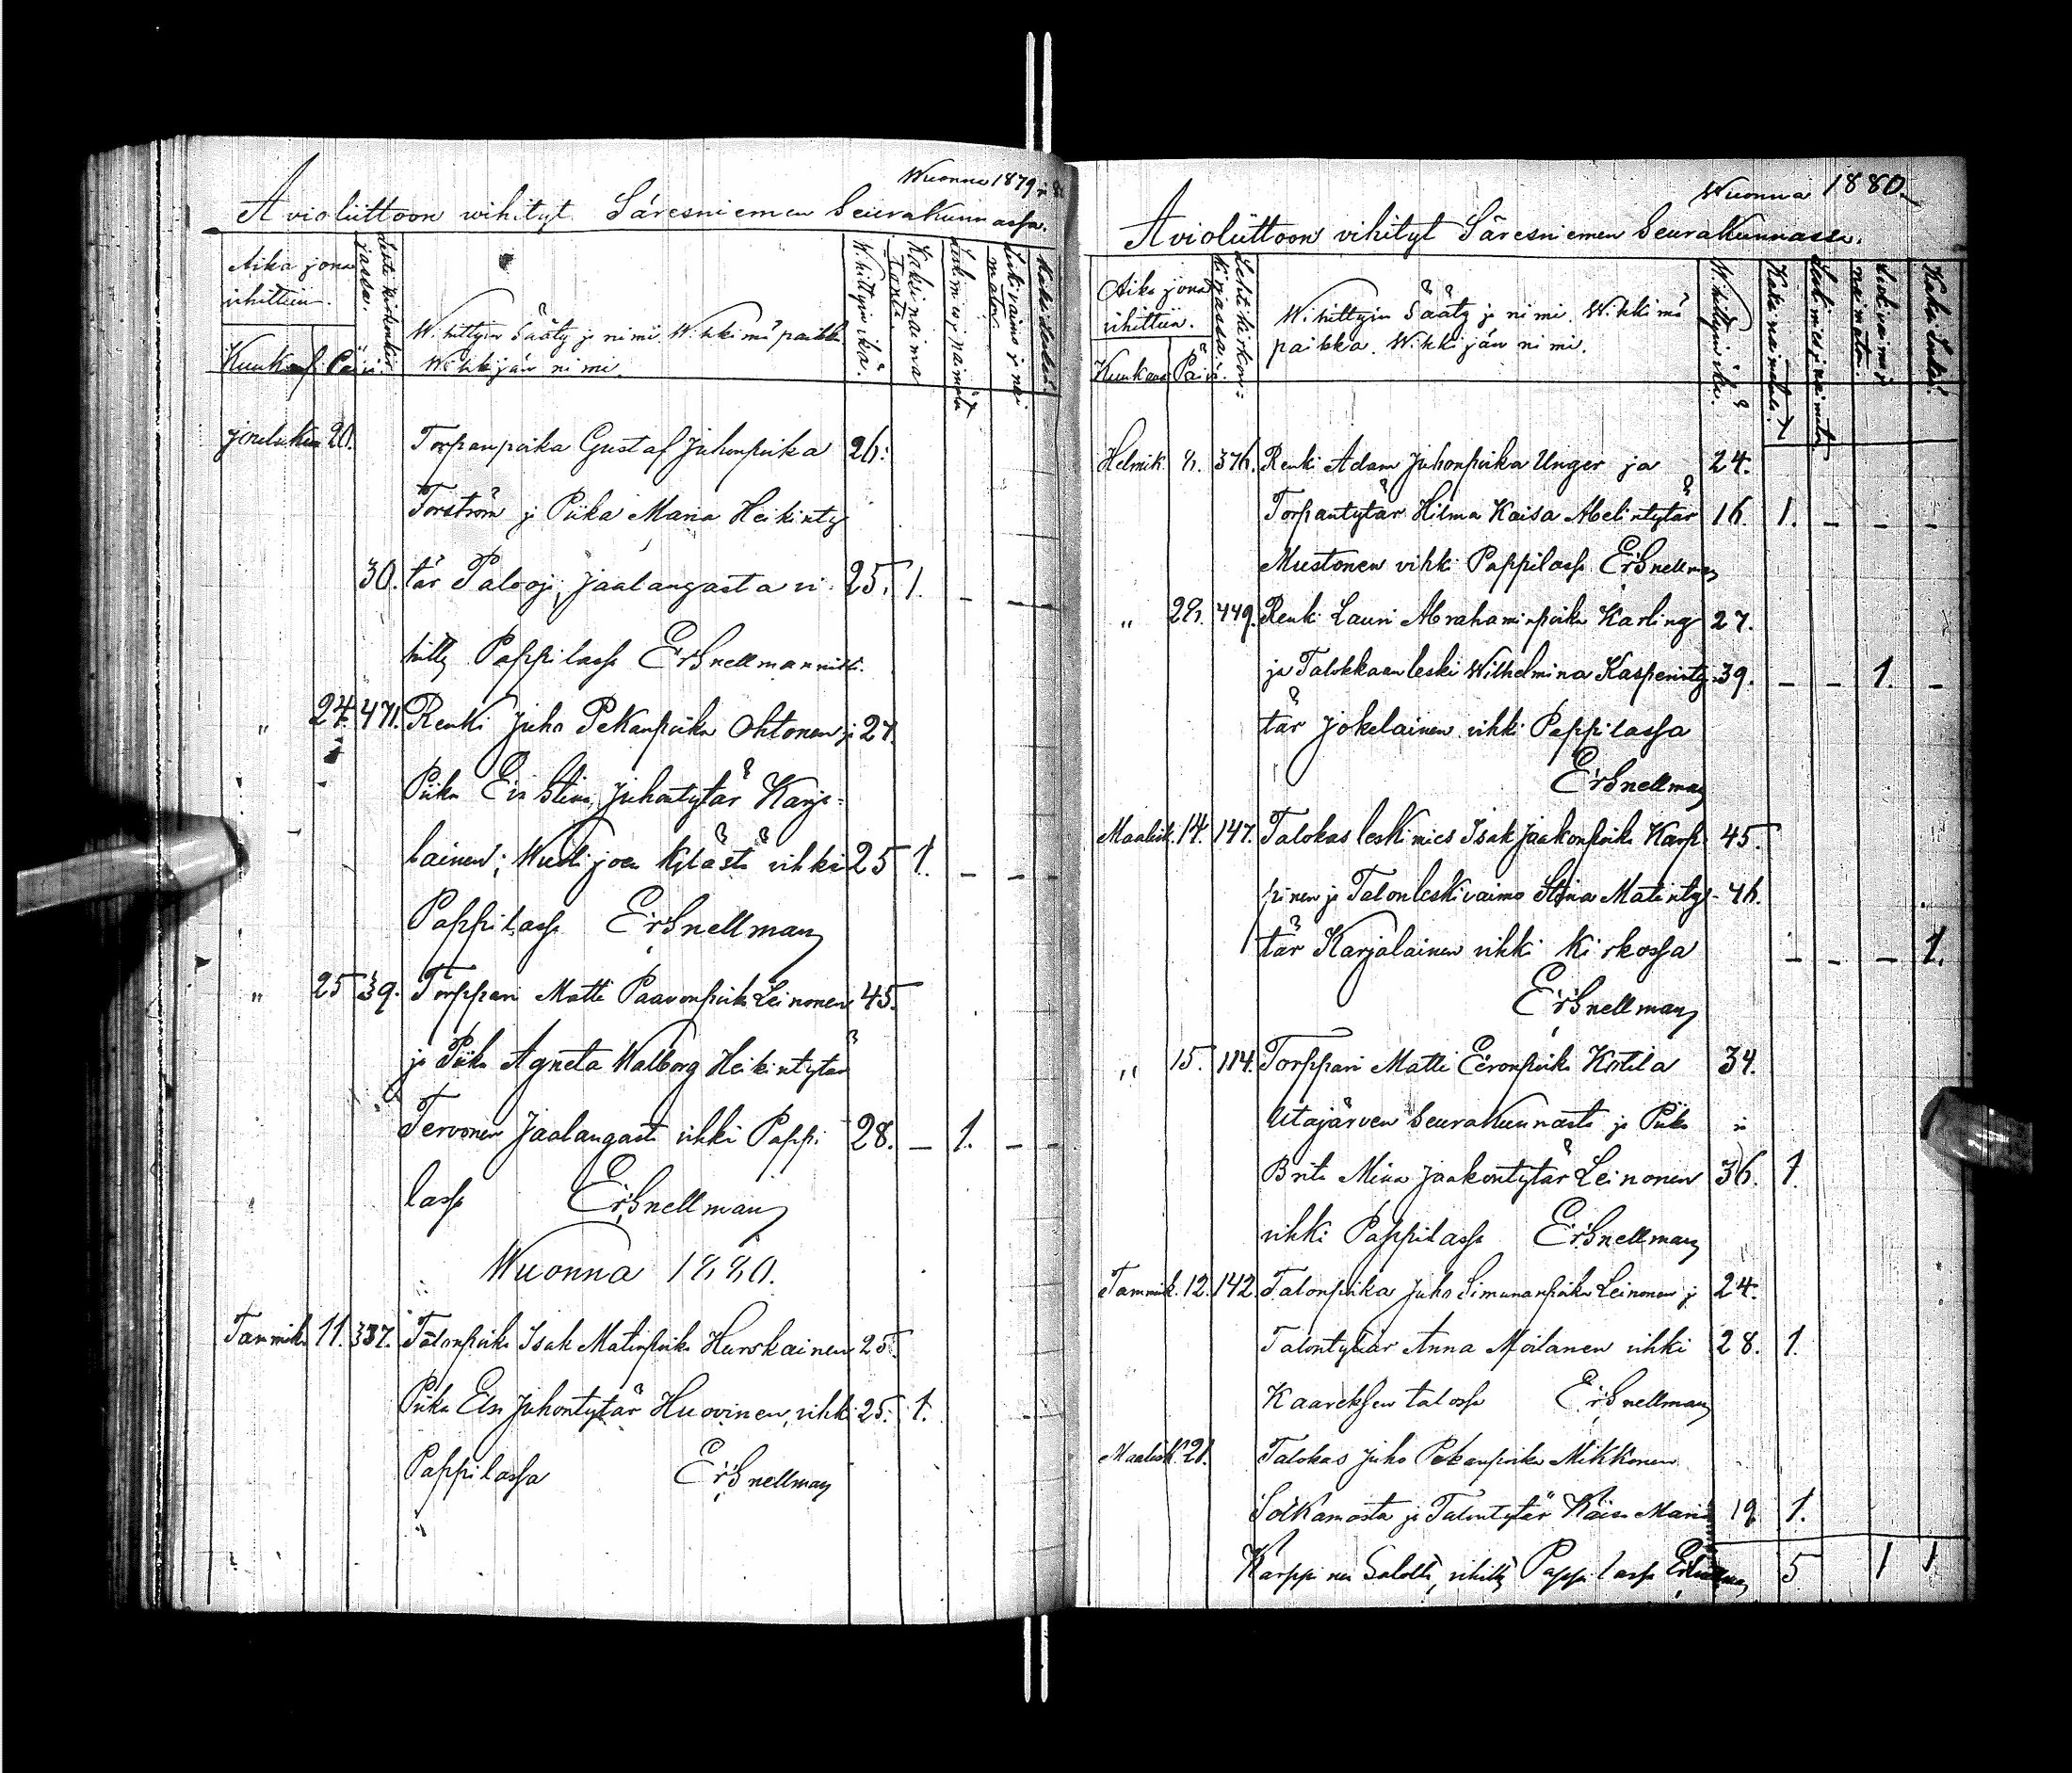 Wuonna 1879
Avioliittoon wihityt Säresniemen Seurakunnassa.
Aika jona
vihittiin.
Kuukausi Päivä.
Wihittyin Sääty ja nimi. Wihkimä paikka.
Wihkijän nimi.
Wihittyin ikä.
Kaksi naima
tonta.
jouluken 20. Torpanpoika Gustaf Juhonpoika 26.
Torström ja Piika Maria Heikinty
30. tär Palooja, Jaalangasta vi 25. 1. - - -
hitty Pappilassa Er: Snellmannilta.
" 24. 471. Renki Juho Pekanpoika Ohtonen ja 27.
Piika Eva Stina Juhontytär Karja-
lainen; Wuolijoen Kylästä vihki 25 1. - - -
Pappilassa Er: Snellman
" 25 39. Torppari Matti Paavonpoika Leinonen 45.
ja Piika Agneta Walborg Heikintytär
Tervonen Jaalangasta vihki Pappi 28. - 1. - -
lassa Er: Snellman
Wuonna 1880.
Tammik. 11. 337. Talonpoika Isak Matinpoika Hurskainen 25.
Piika Elsa Juhontytär Huovinen, vihki 25. 1.
Pappilassa Er: Snellman
Wuonna 1880.
Avioliittoon vihityt Säresniemen Seurakunnassa.
Aika jona
vihittiin.
Kuukausi Päivä.
Lehti kirkon-
kirjassa.
Wihittyin Sääty ja nimi. Wihkimä
paikka. Wihkijän nimi.
Wihittyin ikä.
Kaksi leskeä.
Helmik. 8. 376. Renki Adam Juhonpoika Unger ja 24.
Torpantytär Hilma Kaisa Abelintytär 16. 1. - - -
Mustonen vihki Pappilassa Er: Snellman
" 28. 449. Renki Lauri Abrahaminpoika Karling 27.
ja Talokkaan leski Wilhelmina Kasperinty- 39. - - 1. -
tär Jokelainen vihki Pappilassa
Er: Snellman
Maalisk. 14. 147. Talokas leskimies Isak Jaakonpoika Karp- 45.
pinen ja Talonleskivaimo Stina Matinty- 46.
tär Karjalainen vihki kirkossa - - - 1.
Er: Snellman
" 15. 114. Torppari Matti Eeronpoika Kotila 34.
Utajärven Seurakunnasta ja Piika
Brita Miina Jaakontytär Leinonen 36. 1.
vihki Pappilassa Er: Snellman
Tammik. 12. 142. Talonpoika Juho Simunanpoika Leinonen ja 24.
Talontytär Anna Moilanen vihki 28. 1.
Kaareksen talossa Er: Snellman
Maalisk. 21. Talokas Juho Pekanpoika Mikkonen
Sotkamosta ja Talontytär Kaisa Maria 19 1.
Karppinen Salolta, vihitty Pappilassa 5 1 1